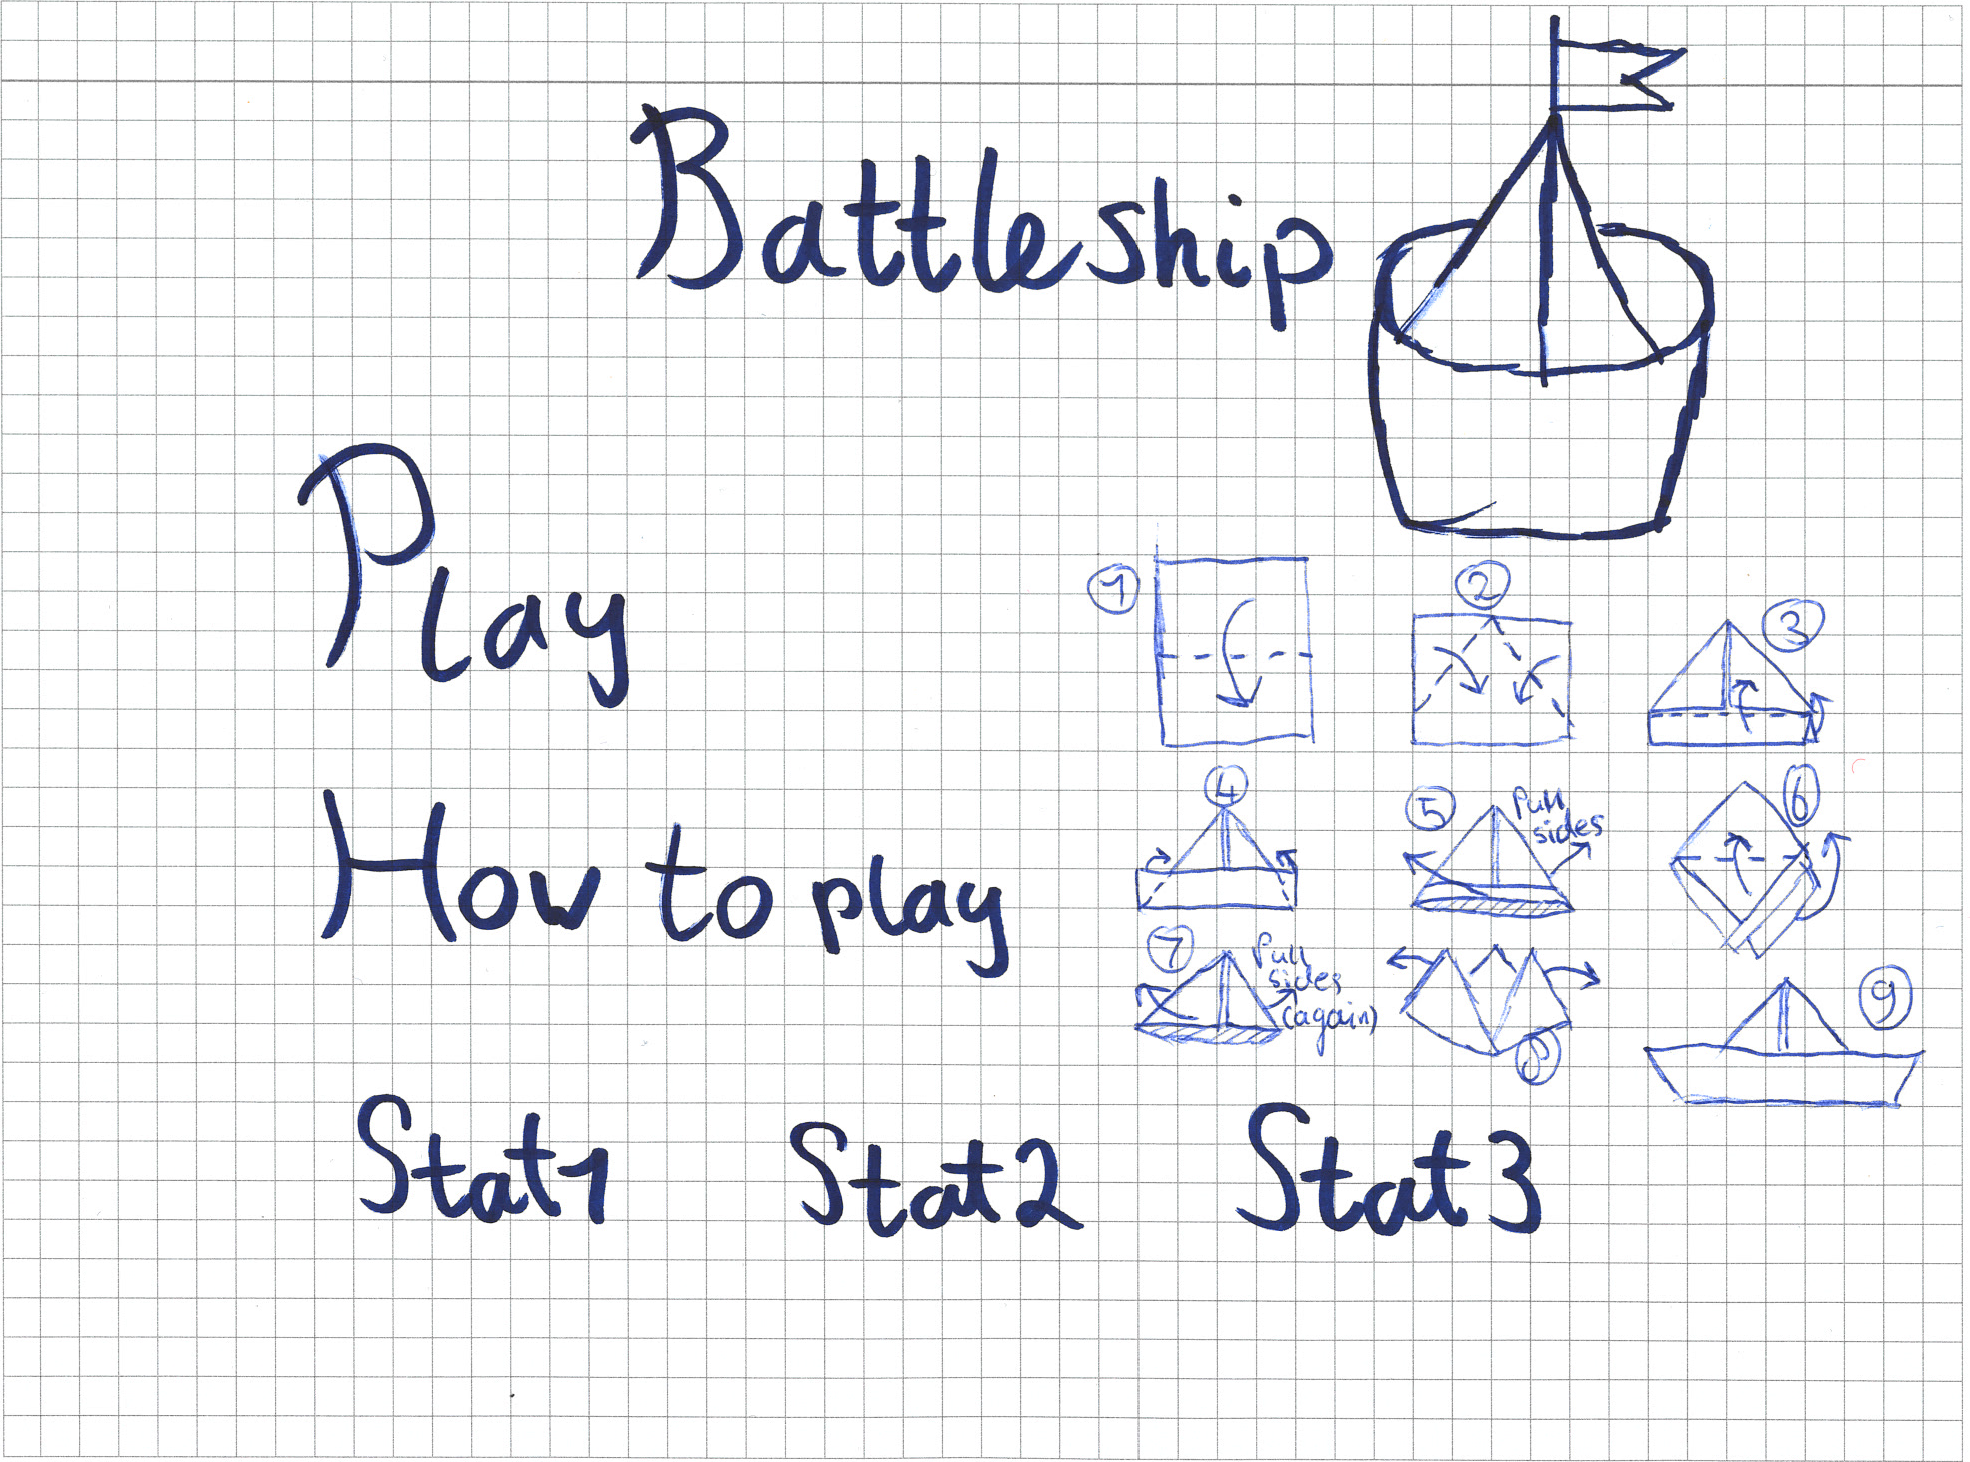 Battleship
Play
1
2
3
How to play
4
5
Pull
sides
6
7
Pull
sides
(again)
8
9
Stat1 Stat2 Stat3